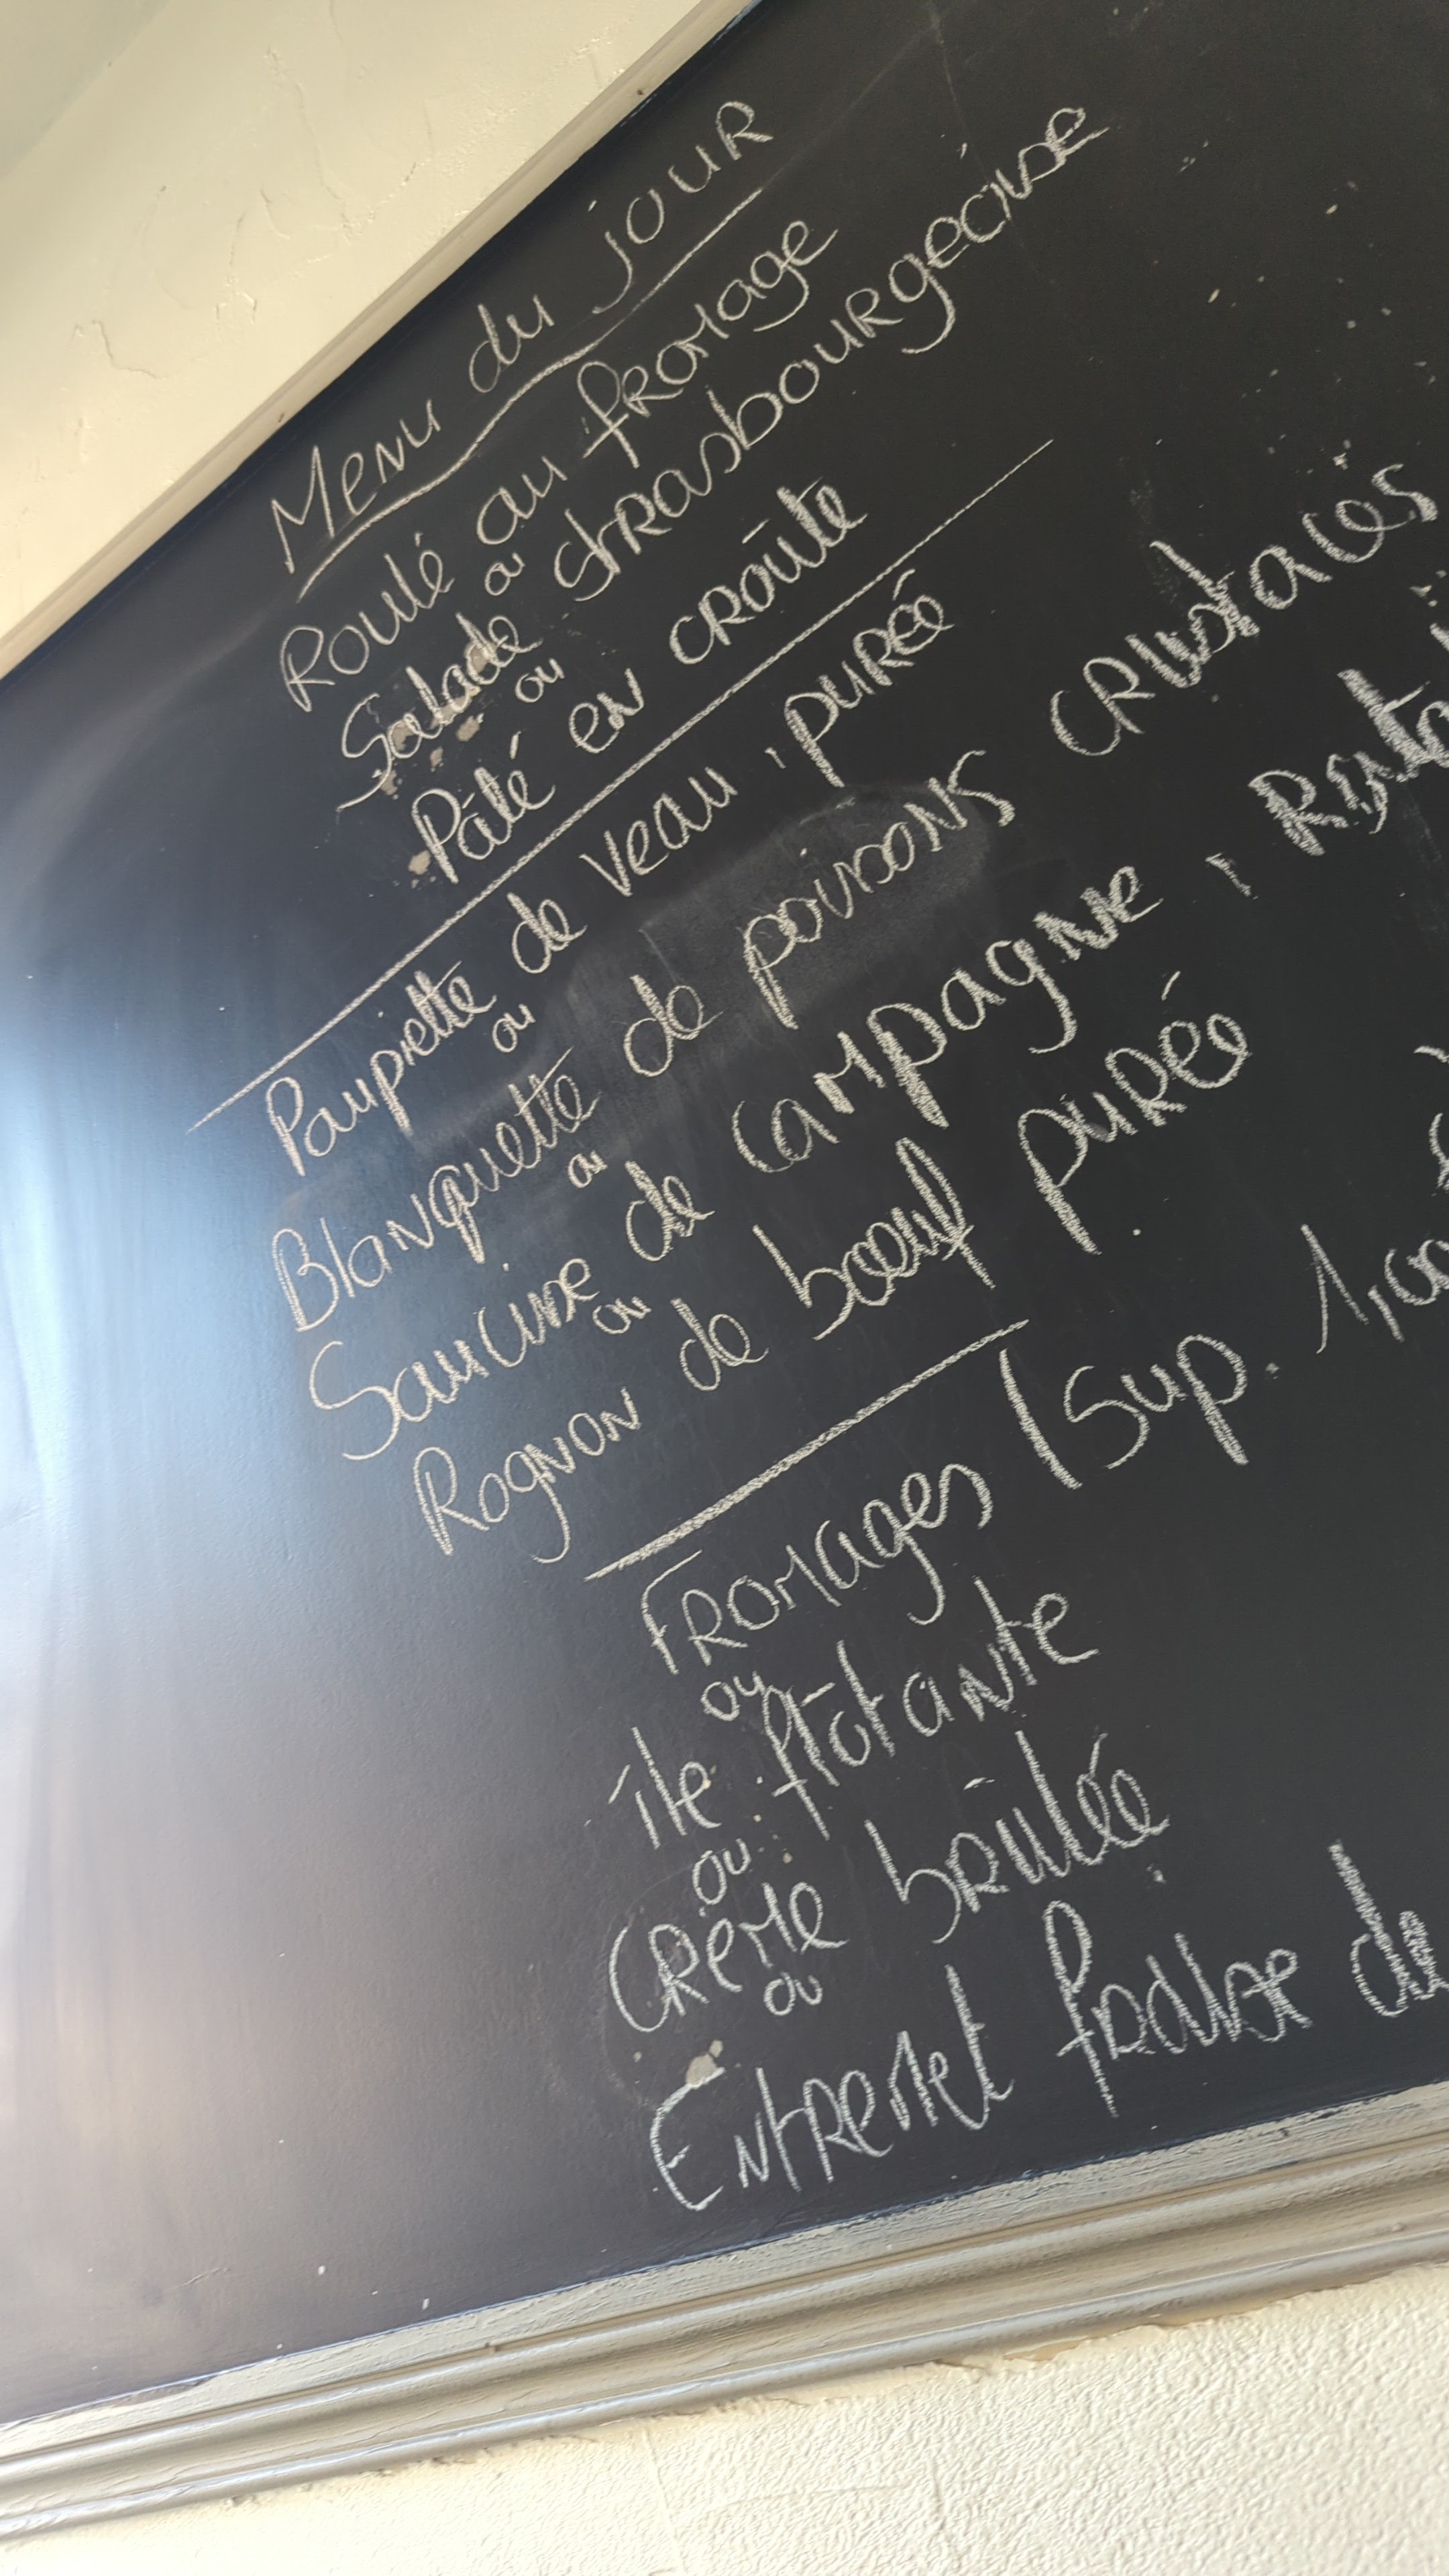 Menu du jour
Roulé au fromage
ou
Salade strasbourgeoise
ou
Pâté en croûte
Paupiette de veau, purée
ou
Blanquette de poissons crustacés
ou
Saucisse de campagne,
ou
Rognon de boeuf purée
Fromages (sup. 1,00
ou
île flotante
ou
Crème brulée
ou
Entremet fraise